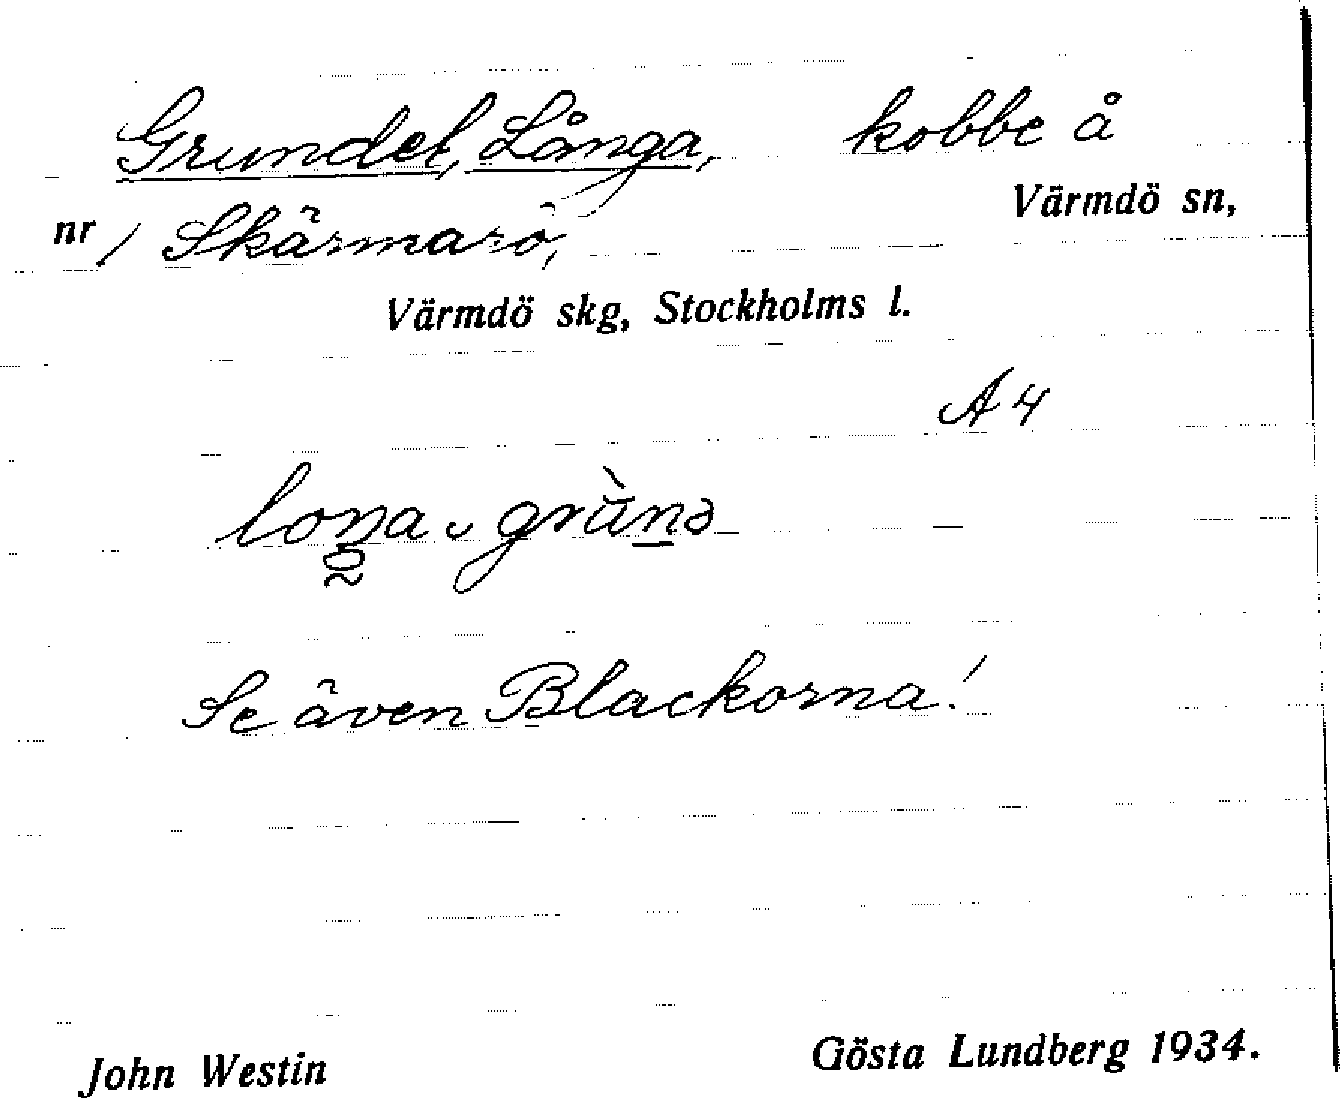 Grundet, Långa, kobbe å
Värmdö sn,
nr / Skärmarö,
Värmdö skg, Stockholms l.
A 4
Se även Blackorna!
John Westin
Gösta Lundberg 1934.